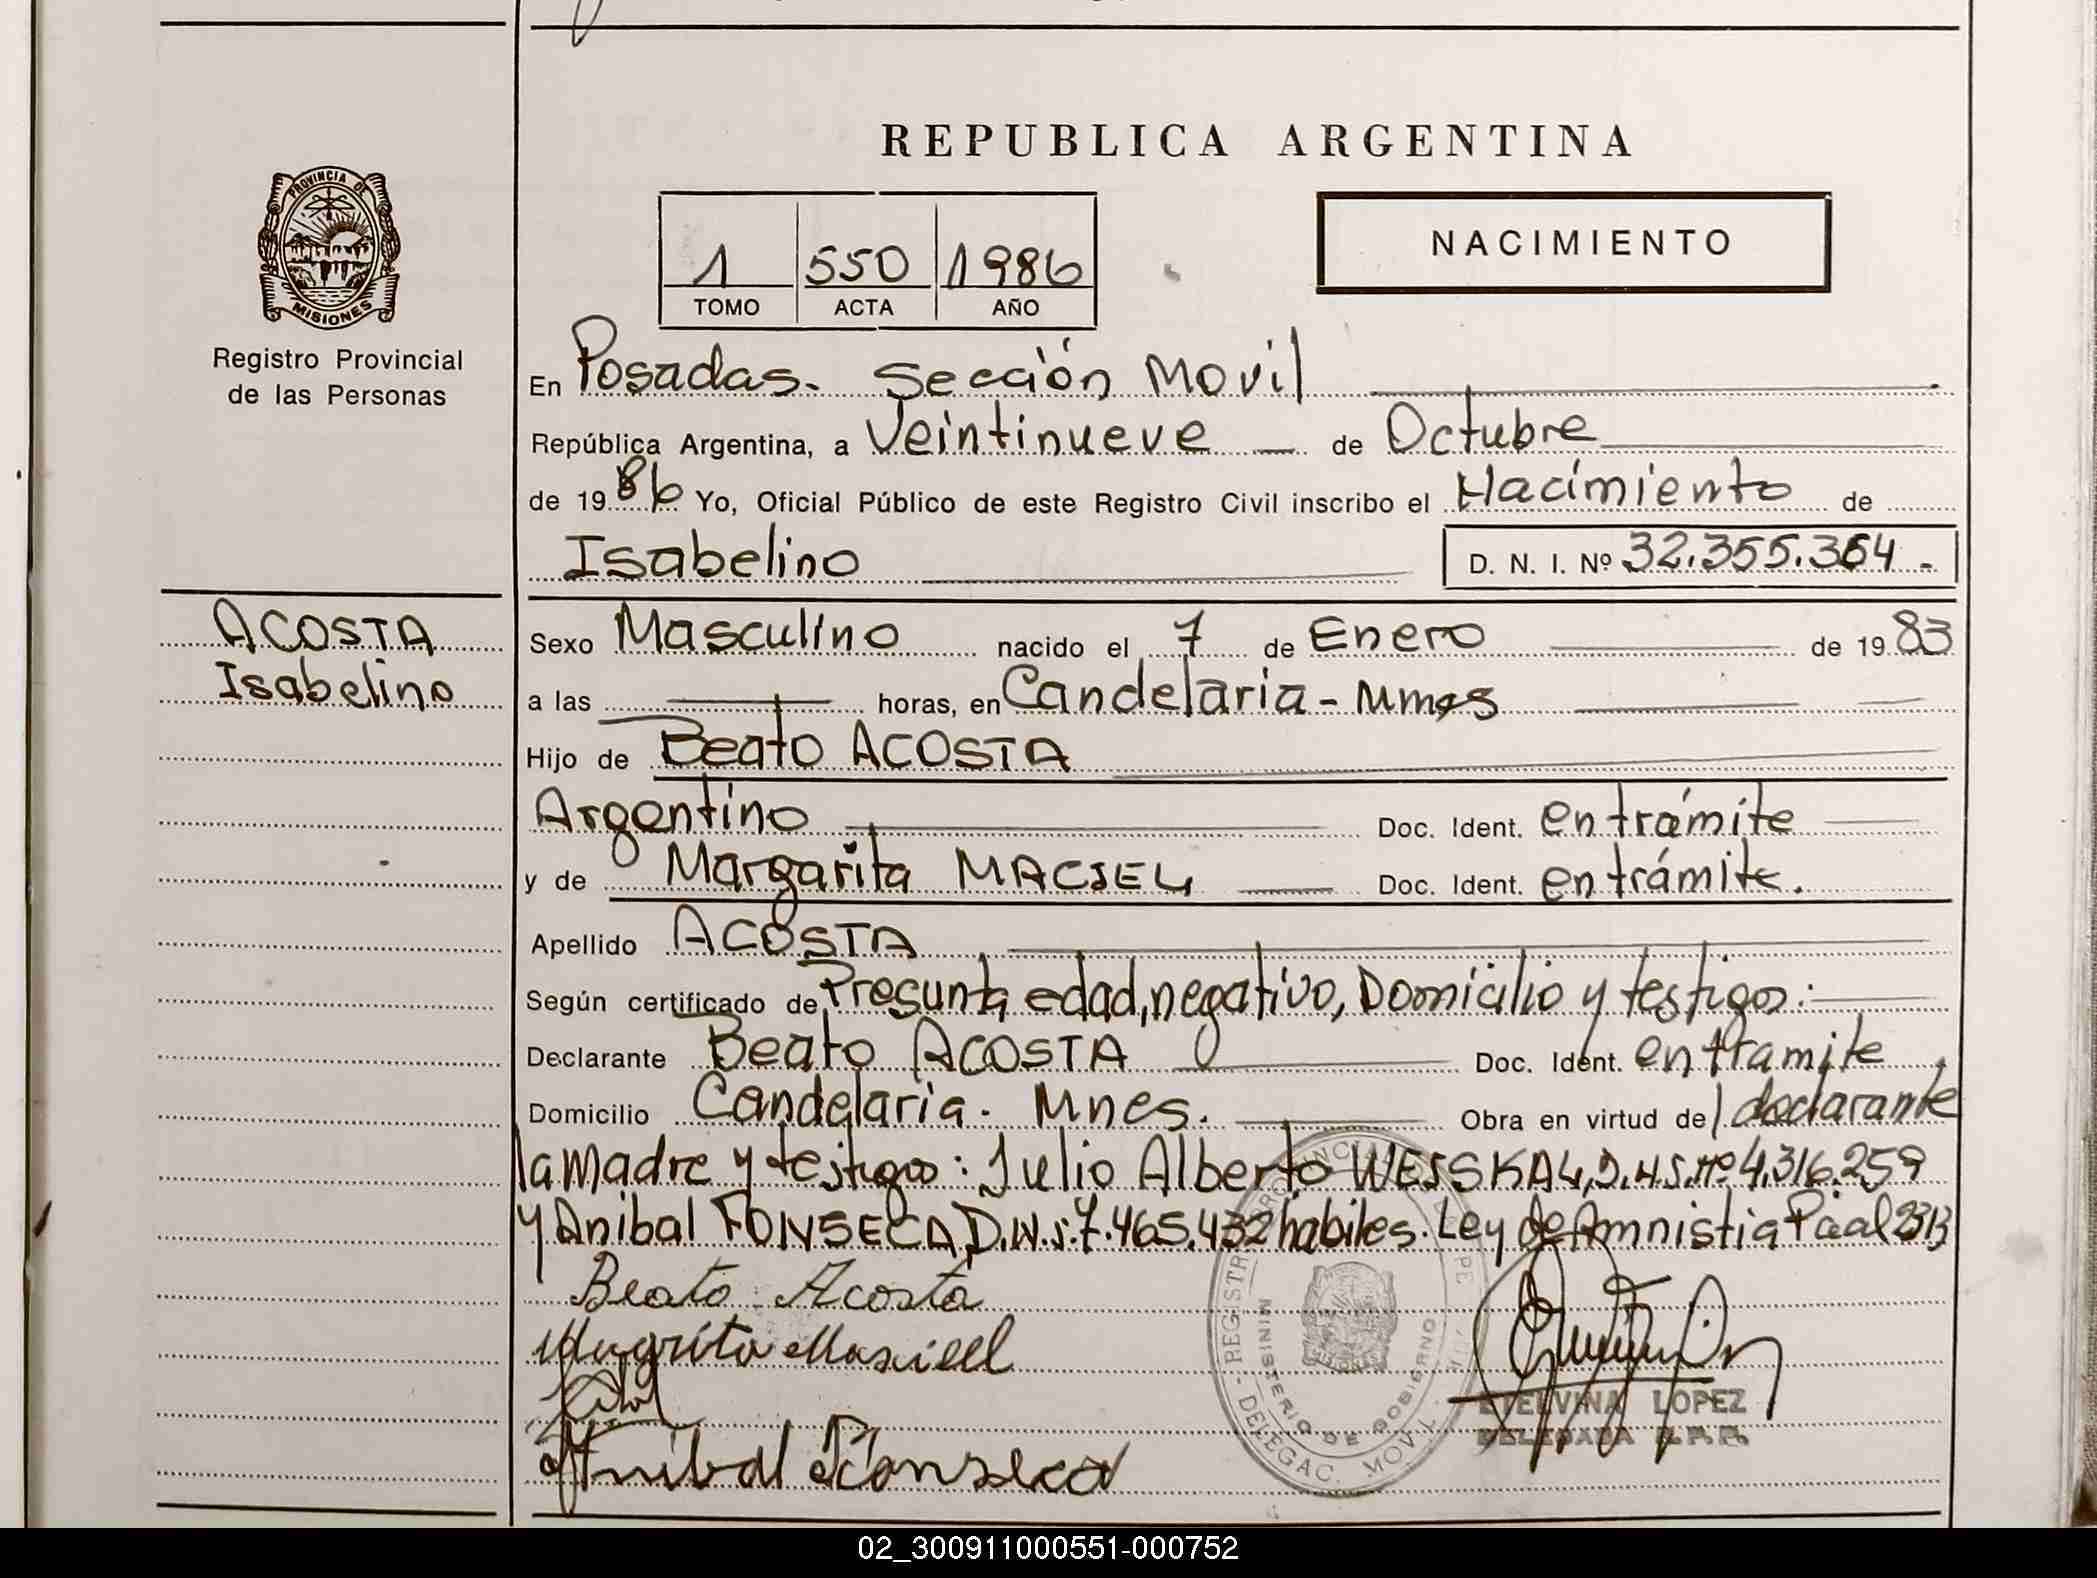 REPUBLICA ARGENTINA
PROVINCIA DE
MISIONES
Registro Provincial
de las Personas
1 550 1986
TOMO ACTA AÑO
NACIMIENTO
En Posadas. Sección Movil
República Argentina, a Veintinueve de Octubre
de 1986 Yo, Oficial Público de este Registro Civil inscribo el Nacimiento de
Isabelino D. N. I. Nº 32.355.364.
ACOSTA
Isabelino
Sexo Masculino nacido el 7 de Enero de 1983
a las horas, en Candelaria - Mnes
Hijo de Beato ACOSTA
Argentino Doc. Ident. en trámite
y de Margarita MACIEL Doc. Ident. en trámite.
Apellido ACOSTA
Según certificado de Presunta edad, negativo, Domicilio y testigos:
Declarante Beato ACOSTA Doc. Ident. en tramite
Domicilio Candelaria. Mnes. Obra en virtud de declarante
la Madre y testigos: Julio Alberto WESSKAL, D.N.I. Nº 4.316.259
y Anibal FONSECA, D.N.I. 7.465.432 habiles. Ley de Amnistia Pcial 2313
Beato Acosta
Margrita Masiell
Anibal Fonseca
MINISTERIO DE GOBIERNO
DELEGAC. MOVIL
ETELVINA LOPEZ
DELEGADA R.P.P.
02_300911000551-000752